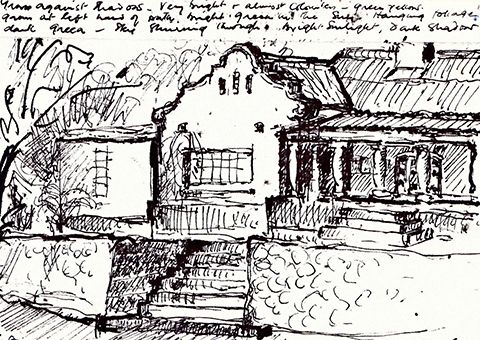 Grass against Shadows - Very bright & almost colourless - green yellow.
green at left hand of path. bright green in the Sun. Hanging foliage
dark Green - Sky Shining through. bright Sunlight, Dark Shadow